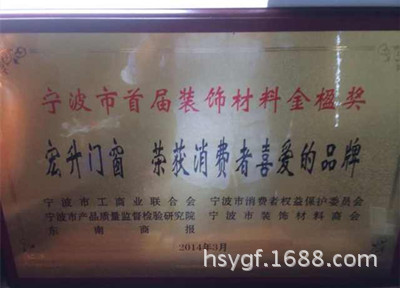 宁波市首届装饰材料金楹奖
宏升门窗 荣获消费者喜爱的品牌
宁波市工商业联合会 宁波市消费者权益保护委员会
宁波市产品质量监督检验研究院 宁波市装饰材料商会
东南商报
2014年3月
hsygf.1688.com